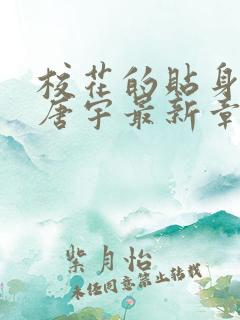 校花的贴身
唐宇最新章
紫月怡
未经同意禁止转载